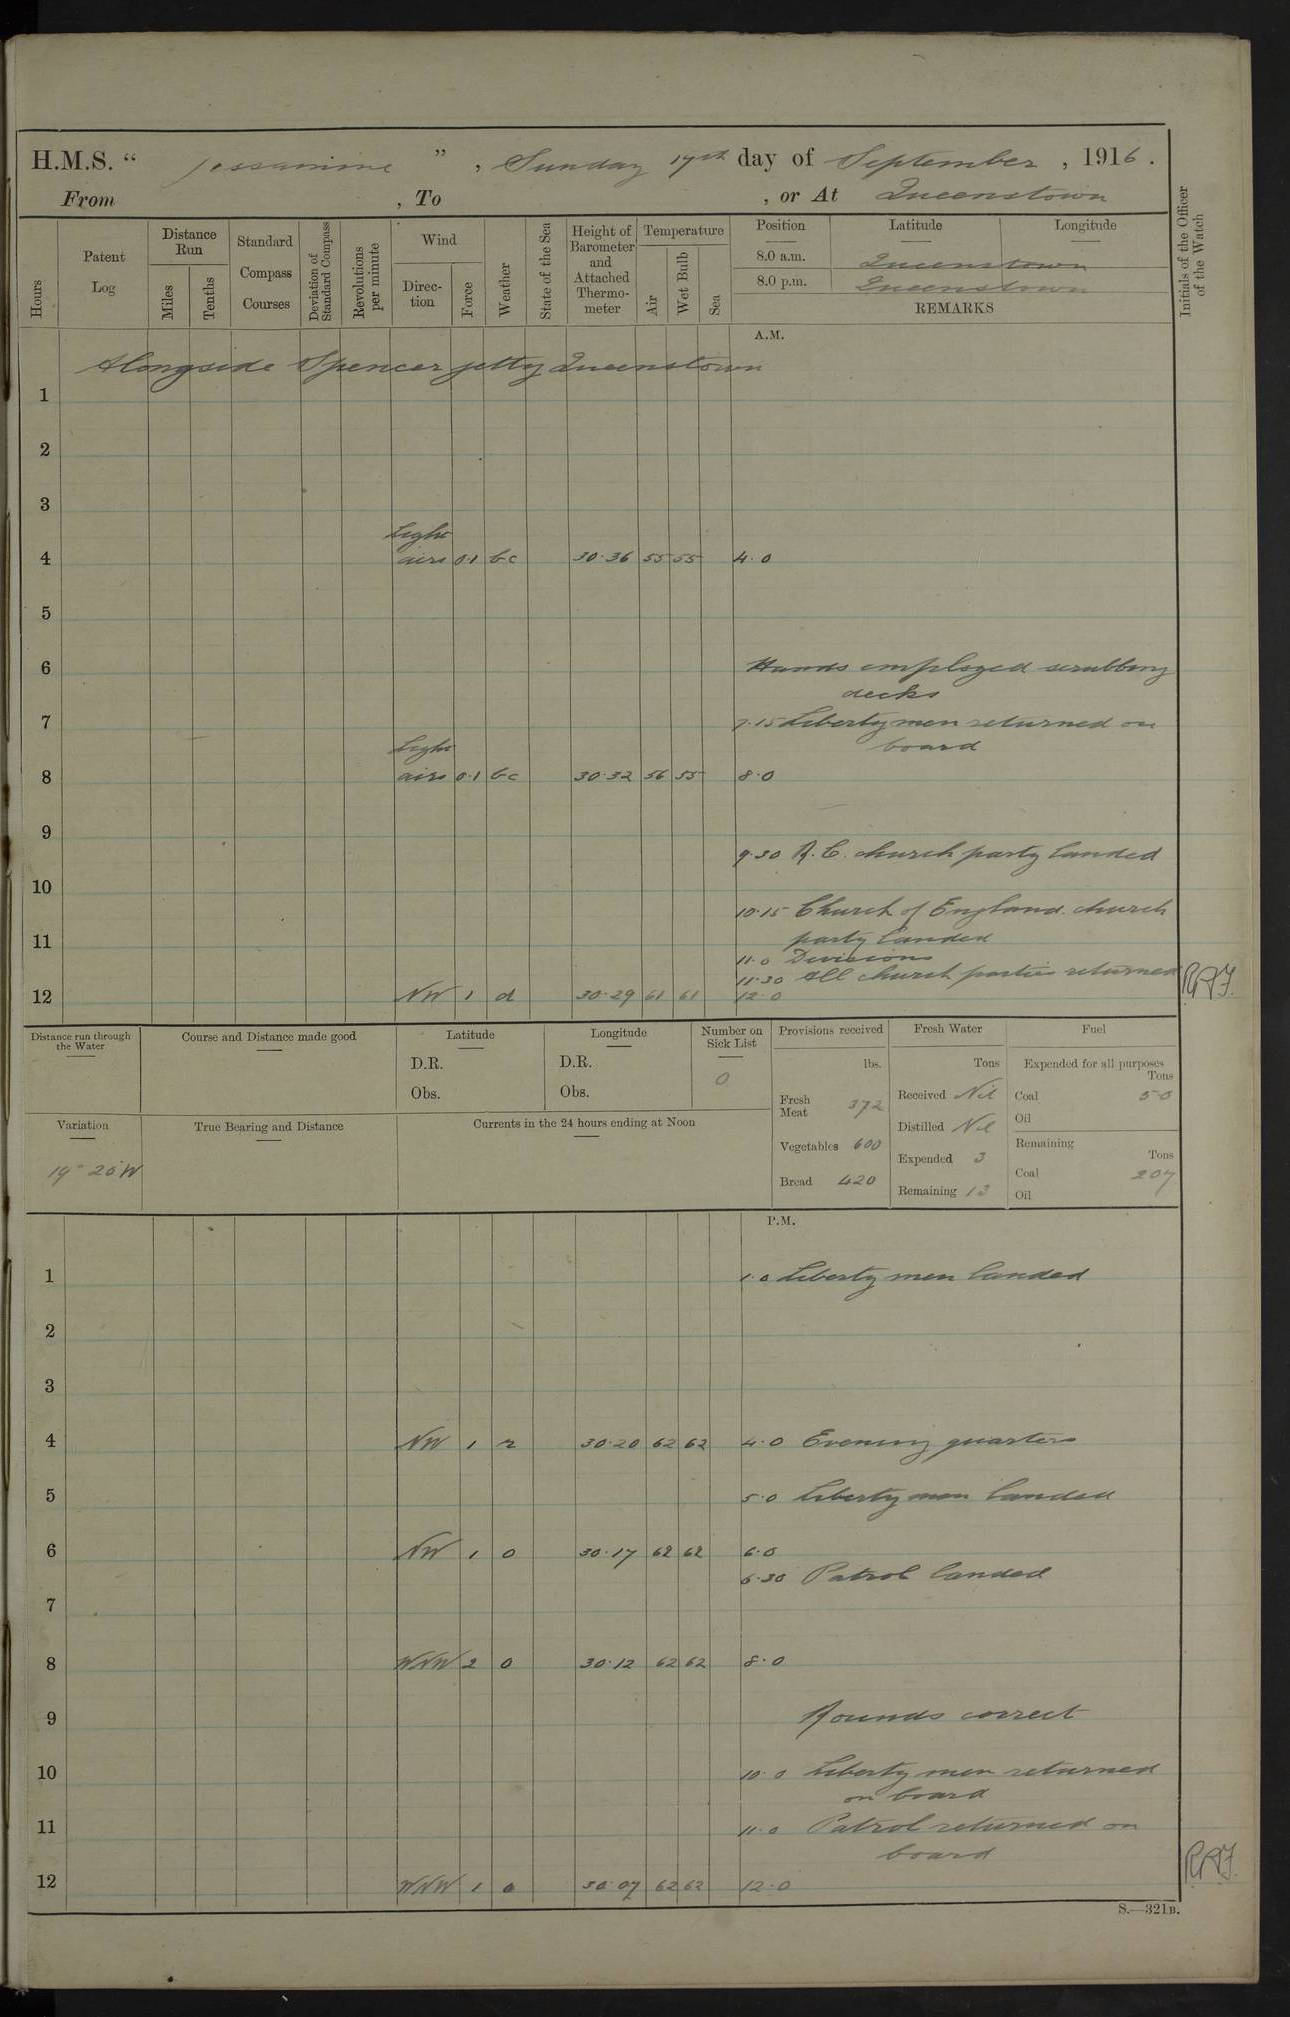 H.M.S. " Jessamine ", Sunday 17th day of September, 1916.
From , To , or At Queenstown
Hours
Patent Log
Distance Run
Miles
Tenths
Standard Compass Courses
Deviation of Standard Compass
Revolutions per minute
Wind
Direction
Force
Weather
State of the Sea
Height of Barometer and Attached Thermometer
Temperature
Air
Wet Bulb
Sea
Position Latitude Longitude
8.0 a.m. Queenstown
8.0 p.m. Queenstown
REMARKS
Initials of the Officer of the Watch
A.M.
Alongside Spencer jetty Queenstown
1
2
3
Light
4 airs 0·1 bc 30·36 55 55 4·0
5
6 Hands employed scrubbing
decks
7 7·15 Liberty men returned on
Light board
8 airs 0·1 bc 30·32 56 55 8·0
9
9·30 R.C. church party landed
10
10·15 Church of England church
11 party landed
11·0 Divisions
11·30 All church parties returned
12 NW 1 d 30·29 61 61 12·0
Distance run through the Water
Course and Distance made good
Latitude
D.R.
Obs.
Longitude
D.R.
Obs.
Number on Sick List
0
Provisions received
lbs.
Fresh Meat 372
Vegetables 600
Bread 420
Fresh Water
Tons
Received Nil
Distilled Nil
Expended 3
Remaining 13
Fuel
Expended for all purposes
Tons
Coal 50
Oil
Remaining
Tons
Coal 207
Oil
Variation
19° 20' W
True Bearing and Distance
Currents in the 24 hours ending at Noon
P.M.
1 1·0 Liberty men landed
2
3
4 NW 1 r 30·20 62 62 4·0 Evening quarters
5 5·0 Liberty men landed
6 NW 1 o 30·17 62 62 6·0
6·30 Patrol landed
7
8 WNW 2 o 30·12 62 62 8·0
9 Rounds correct
10 10·0 Liberty men returned
on board
11 11·0 Patrol returned on
board
12 WNW 1 o 30·07 62 62 12·0
S.—321B.